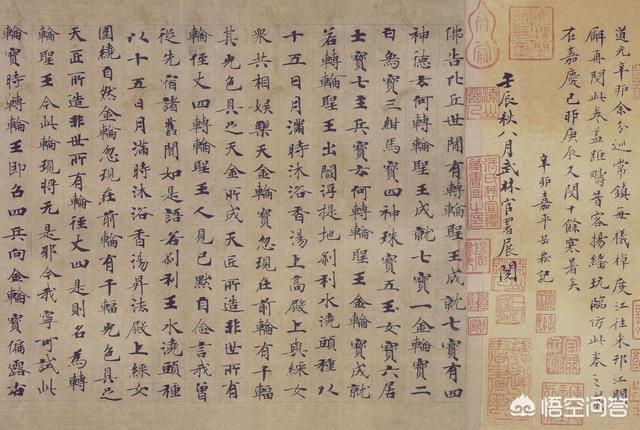 道光辛卯余分巡常鎮每檥棹度江往来邗江閒
廨再閱此卷蓋距疇昔客揚繙玩臨仿此卷之昔
在嘉慶己卯庚辰又閱十餘寒暑矣
辛卯嘉平岳崧記
壬辰秋八月武林官署展閱
佛告比丘世間有轉輪聖王成就七寶有四
神德云何轉輪聖王成就七寶一金輪寶二
白象寶三紺馬寶四神珠寶五玉女寶六居
士寶七主兵寶云何轉輪聖王金輪寶成就
若轉輪聖王出閻浮提地刹利水澆頭種以
十五日月滿時沐浴香湯上高殿上與婇女
眾共相娛樂天金輪寶忽現在前輪有千輻
其光色具足天金所成天匠所造非世所有
輪徑丈四轉輪聖王人見已默自念言我曾
從先宿諸舊聞如是語若刹利王水澆頭種
以十五日月滿時沐浴香湯昇法殿上婇女
圍繞自然金輪忽現在前輪有千輻光色具足
天匠所造非世所有輪徑丈四是則名為轉
輪聖王今此輪現將无是耶今我寧可試此
輪寶時轉輪王即召四兵向金輪寶偏露右
悟空问答